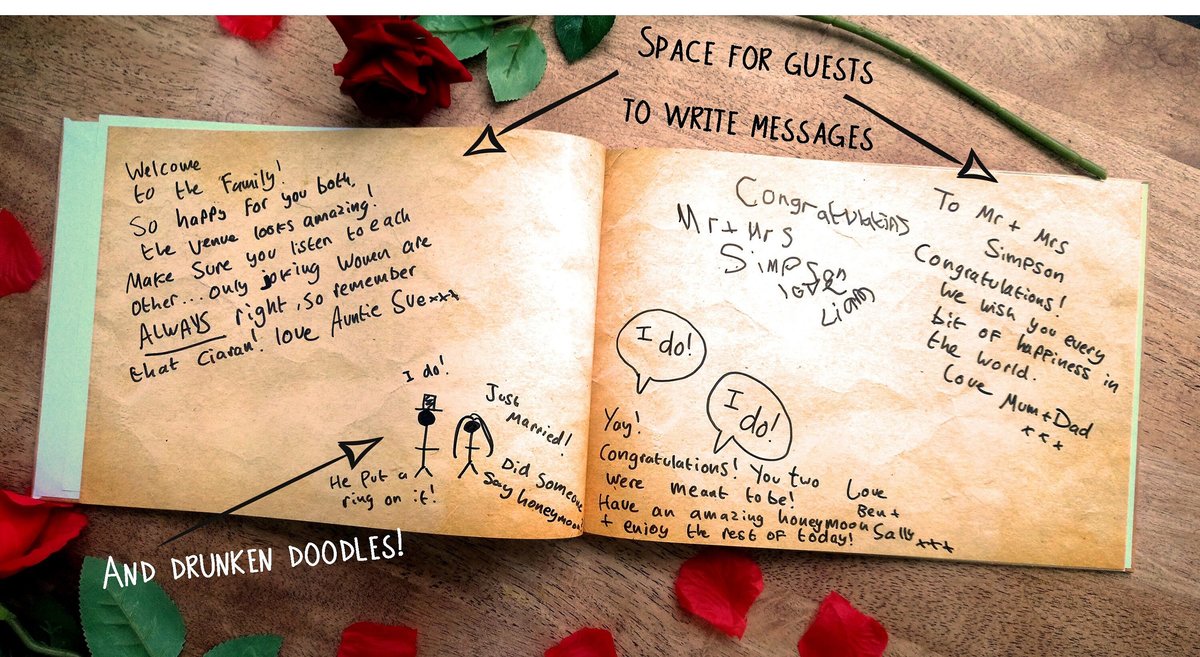 SPACE FOR GUESTS
TO WRITE MESSAGES
Welcome
to the Family!
So happy for you both,
the venue looks amazing!
Make Sure you listen to each
other... only joking Women are
ALWAYS right, so remember
that Ciaran! love Auntie Sue xxx
I do!
Just
Married!
He Put a
ring on it!
Did Someone
Say honeymoon
Congratulatins
Mr + Mrs
Simpson
love
Liam
To Mr + Mrs
Simpson
Congratulations!
We wish you every
bit of happiness in
the world.
Love Mum + Dad
x x x
I do!
I do!
Yay!
Congratulations! You two
were meant to be!
Have an amazing honeymoon
+ enjoy the rest of today!
Love
Ben +
Sally xxx
AND DRUNKEN DOODLES!